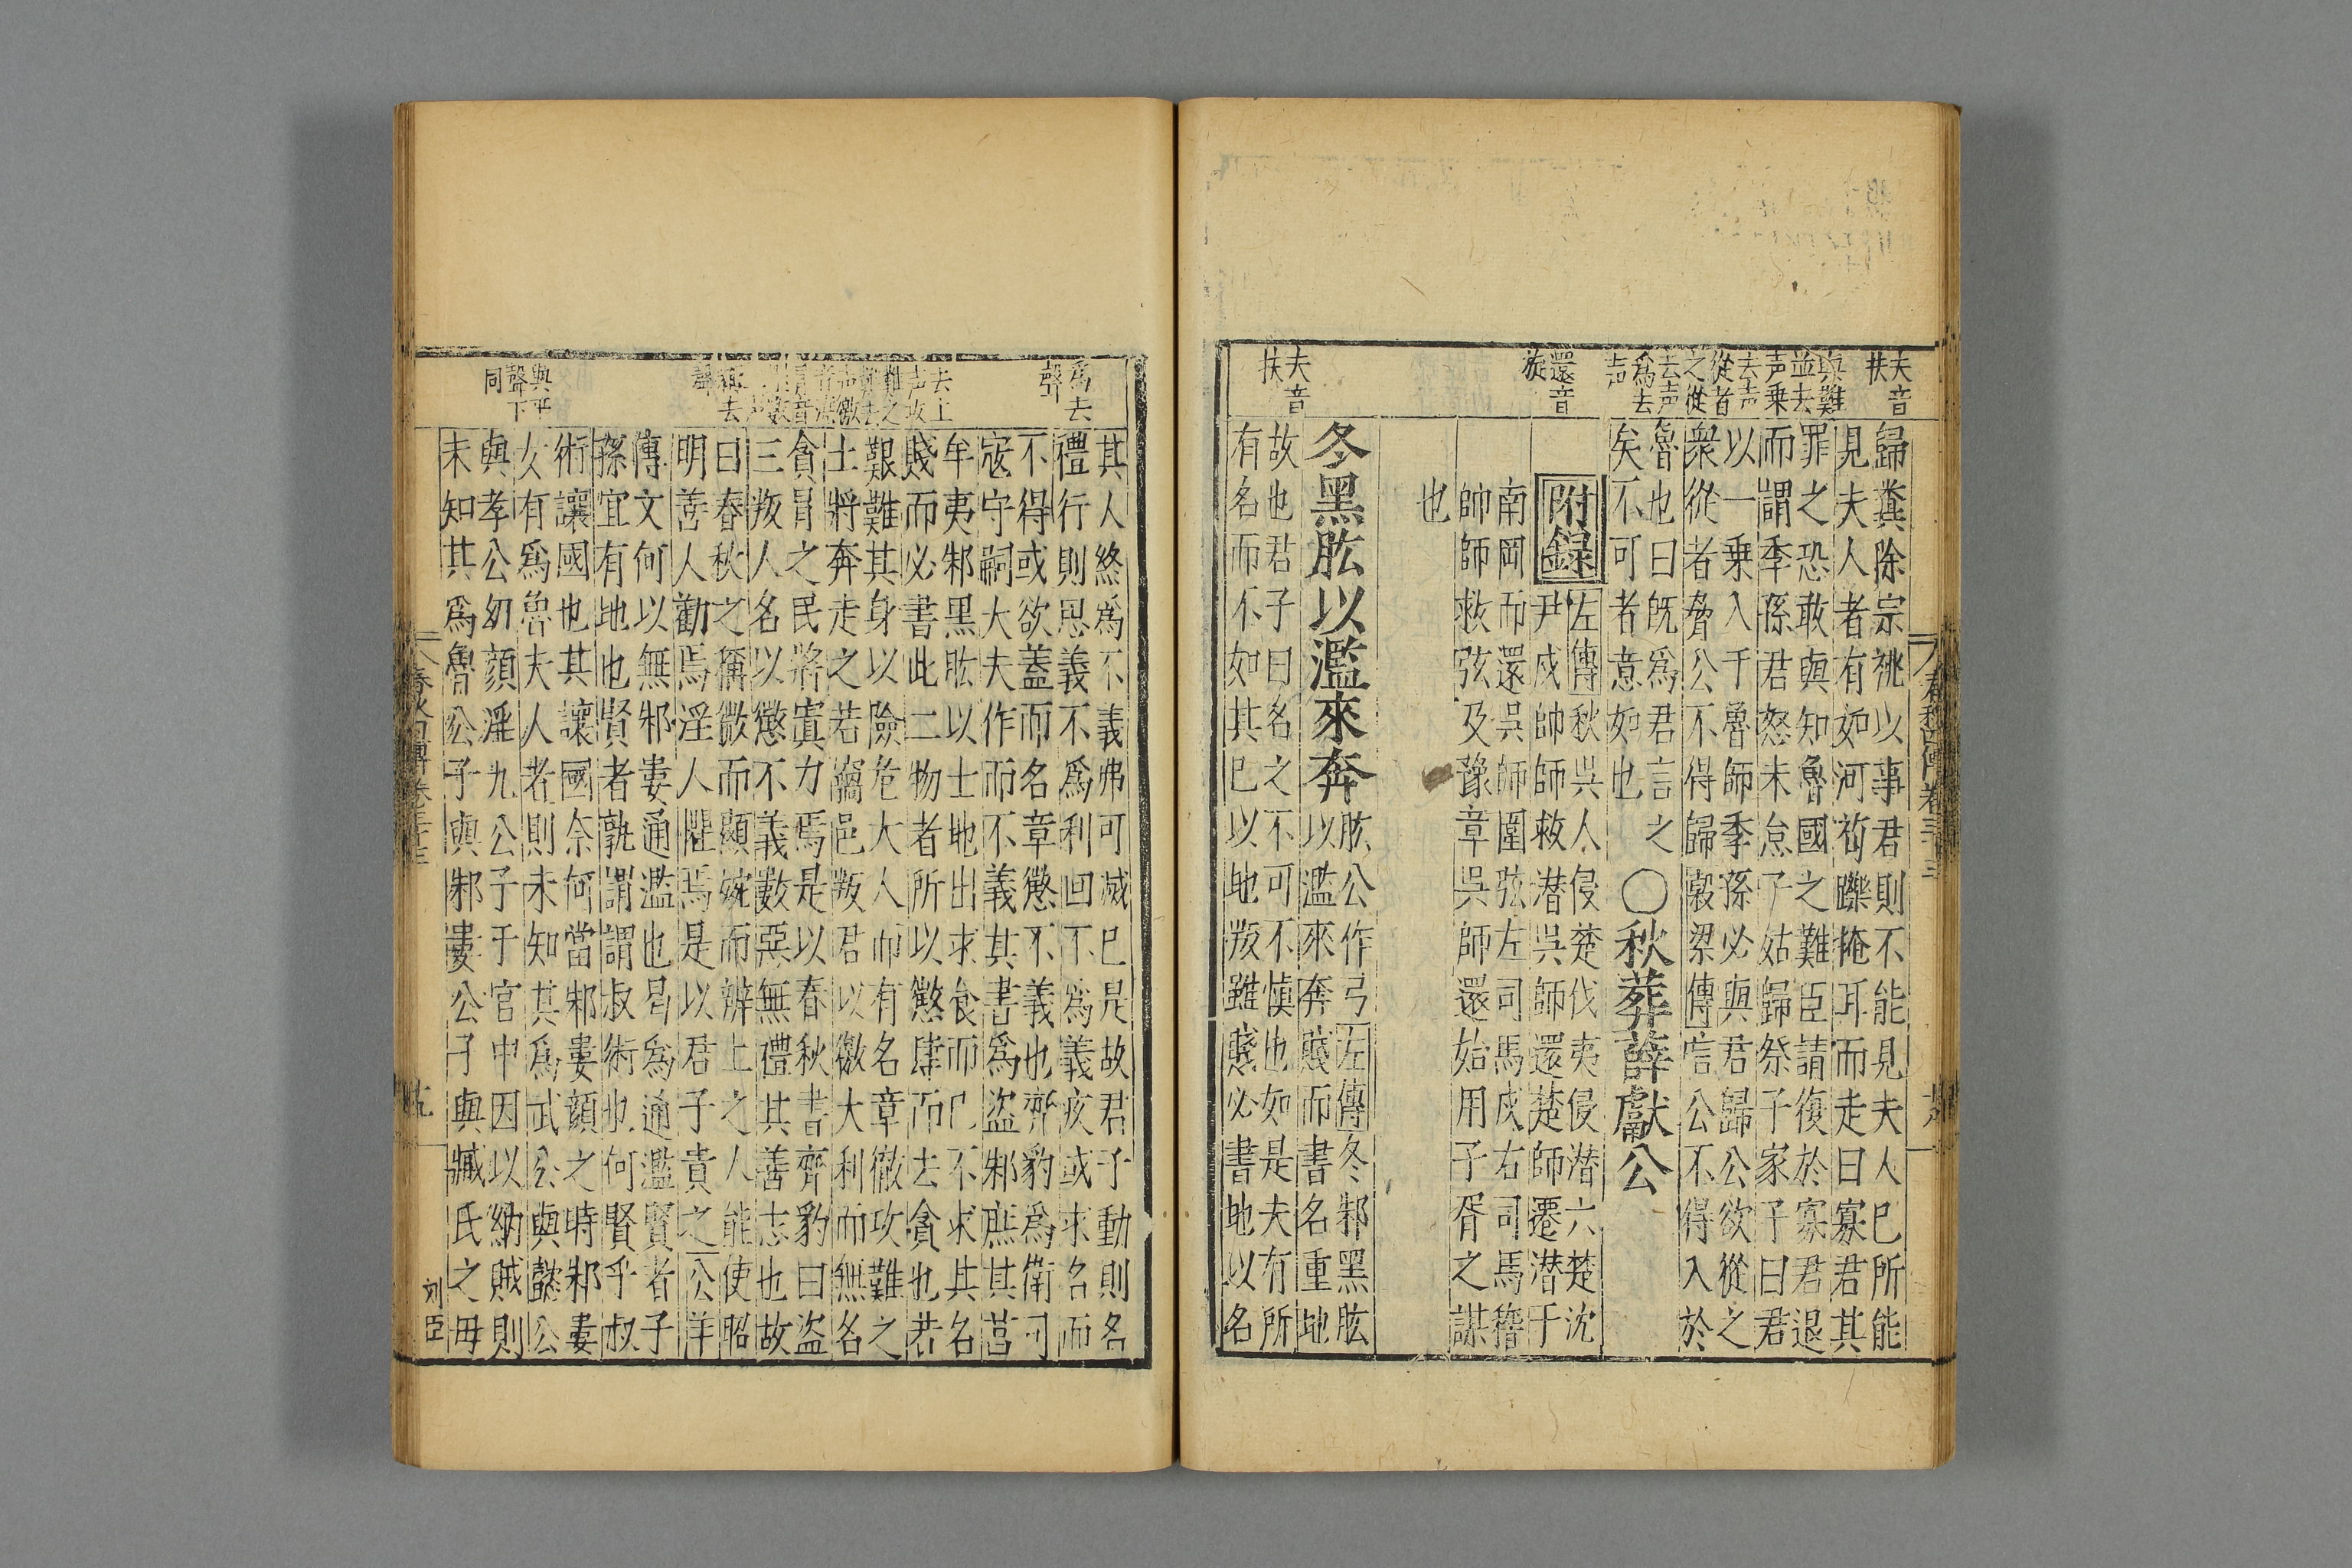 夫音
扶
與難
並去
声乗
去声
從者
之從
去声
爲去
声
還音
旋
夫音
扶
歸糞除宗祧以事君則不能見夫人已所能
見夫人者有如河荀躒掩耳而走曰寡君其
罪之恐敢與知魯國之難臣請復於寡君退
而謂季孫君怒未怠子姑歸祭子家子曰君
以一乗入于魯師季孫必與君歸公欲從之
衆從者脅公不得歸榖梁傳唁公不得入於
魯也曰旣爲君言之
矣不可者意如也
○秋葬薛獻公
附録
左傳秋吳人侵楚伐夷侵潜六楚沈
尹戌帥師救潜吳師還楚師遷潜于
南岡而還吳師圍弦左司馬戌右司馬稽
帥師救弦及豫章吳師還始用子胥之謀
也
冬黑肱以濫來奔
肱公作弓左傳冬邾黑肱
以濫來奔賤而書名重地
故也君子曰名之不可不慎也如是夫有所
有名而不如其已以地叛雖賤必書地以名
春秋四傳卷三十三
爲去
聲
去上
声攻
難之
稱去
聲
與平
聲下
同
其人終爲不義弗可滅已是故君子動則名
禮行則思義不爲利回不爲義疚或求名而
不得或欲蓋而名章懲不義也齊豹爲衛司
宼守嗣大夫作而不義其書爲盜邾庶其莒
牟夷邾黑肱以土地出求食而已不求其名
賤而必書此二物者所以懲肆而去貪也若
艱難其身以險危大人而有名章徹攻難之
士將奔走之若竊邑叛君以徼大利而無名
貪冒之民將寘力焉是以春秋書齊豹曰盜
三叛人名以懲不義數惡無禮其善志也故
曰春秋之稱微而顯婉而辨上之人能使昭
明善人勸焉淫人懼焉是以君子貴之公羊
傳文何以無邾婁通濫也曷爲通濫賢者子
孫宜有地也賢者孰謂謂叔術也何賢乎叔
術讓國也其讓國奈何當邾婁顏之時邾婁
女有爲魯夫人者則未知其爲武公與懿公
與孝公幼顏淫九公子于宫中因以納賊則
未知其爲魯公子與邾婁公子與臧氏之母
春秋四傳卷三十三
刘臣